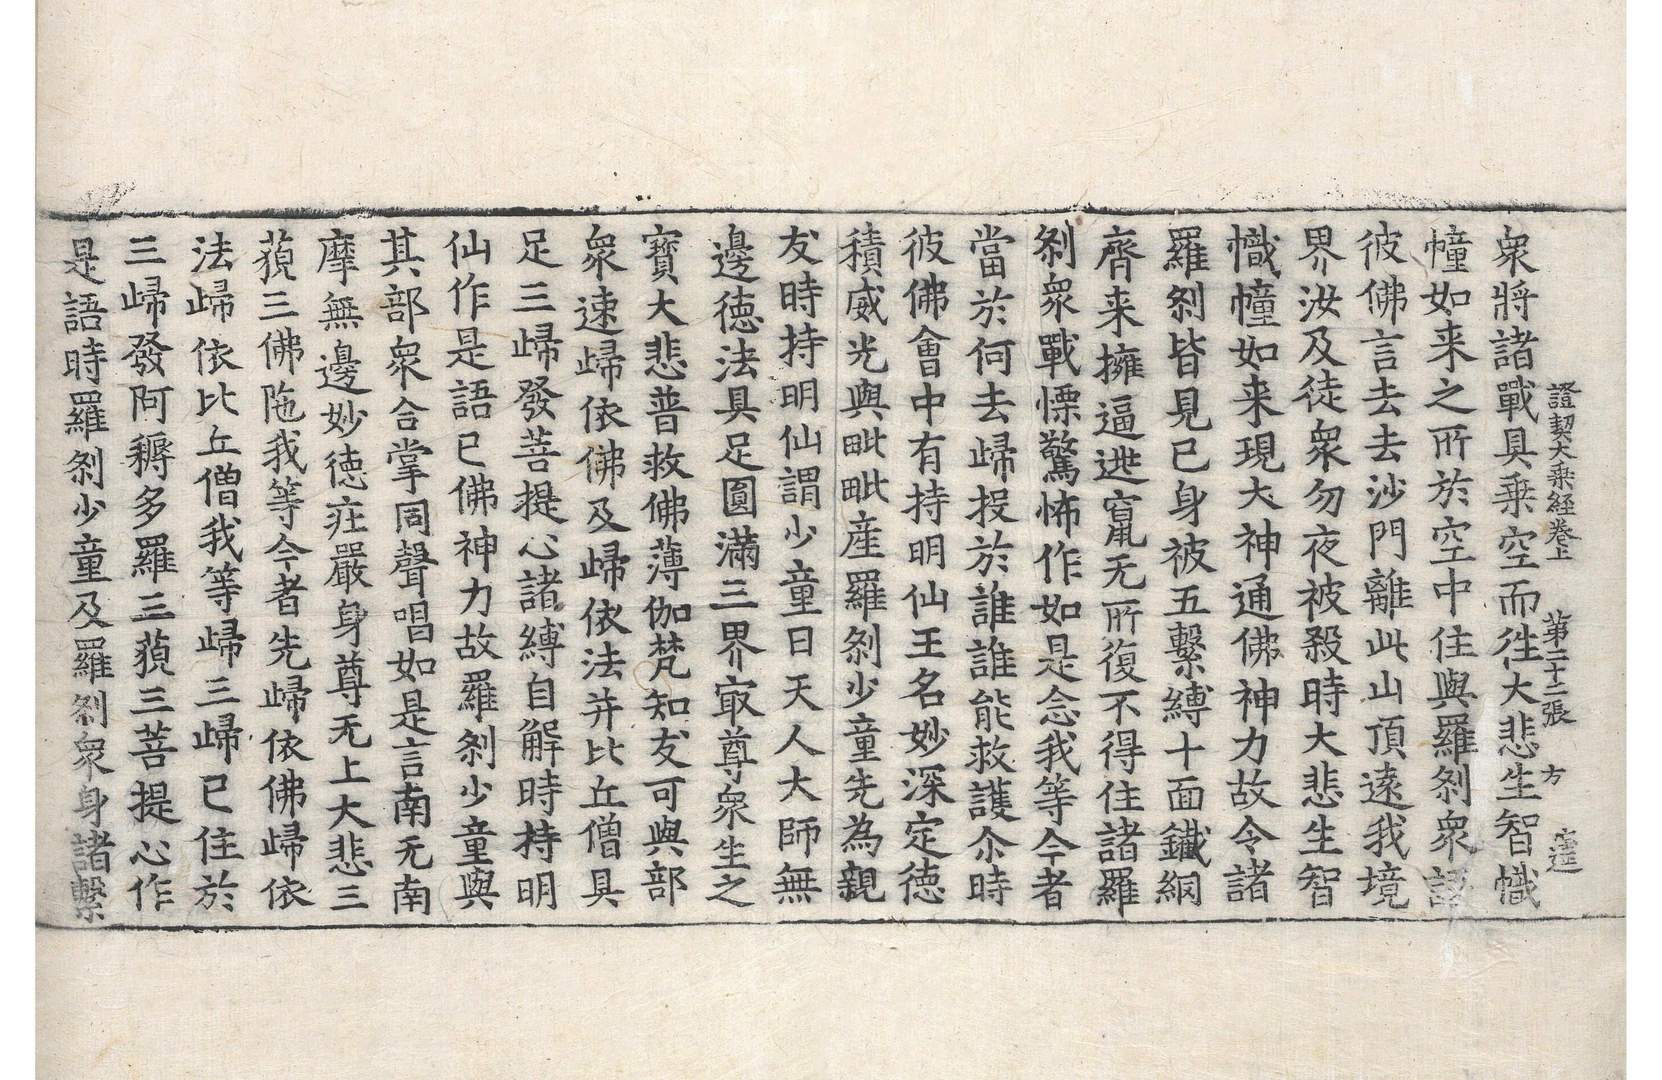 證契大乘経卷上 第二十二張 方
衆將諸戰具乗空而徃大悲生智幟
幢如来之所於空中住與羅刹衆語
彼佛言去去沙門離此山頂遠我境
界汝及徒衆勿夜被殺時大悲生智
幟幢如来現大神通佛神力故令諸
羅刹皆見已身被五繫縛十面鐵網
齊来擁逼逃竄无所復不得住諸羅
刹衆戰慄驚怖作如是念我等今者
當於何去歸投於誰誰能救護尒時
彼佛會中有持明仙王名妙深定徳
積威光與毗毗産羅刹少童先為親
友時持明仙謂少童曰天人大師無
邊徳法具足圓滿三界㝡尊衆生之
寶大悲普救佛薄伽梵知友可與部
衆速歸依佛及歸依法并比丘僧具
足三歸發菩提心諸縛自解時持明
仙作是語已佛神力故羅刹少童與
其部衆合掌同聲唱如是言南无南
摩無邊妙徳莊嚴身尊无上大悲三
藐三佛陁我等今者先歸依佛歸依
法歸依比丘僧我等歸三歸已住於
三歸發阿耨多羅三藐三菩提心作
是語時羅刹少童及羅刹衆身諸繫